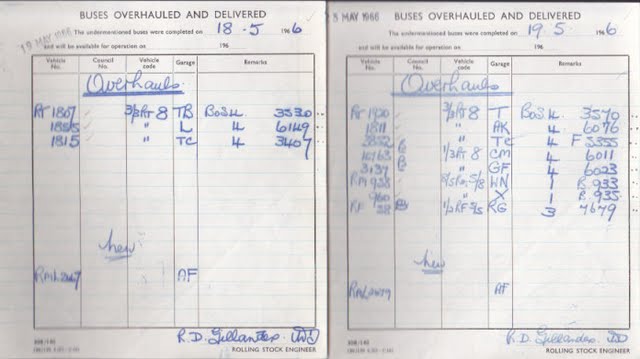 BUSES OVERHAULED AND DELIVERED
19 MAY 1966
The undermentioned buses were completed on 18 . 5 1966
and will be available for operation on 196
Vehicle No. Council No. Vehicle code Garage Remarks
Overhauls
RT 1807 3/3RT 8 TB Bo SH. 3530
" L 4 6149
1815 " TC 4 3407
New
RML 2467 AF
R.D. Gillanders
ROLLING STOCK ENGINEER
MAY 1966
BUSES OVERHAULED AND DELIVERED
The undermentioned buses were completed on 19. 5 1966
and will be available for operation on 196
Vehicle No. Council No. Vehicle code Garage Remarks
Overhauls
RT 1920 3/3RT 8 T Bo SH. 3570
1811 " AK 4 6076
" TC 4 F 5355
B 1/3RT 8 CM 4 6011
3137 B " GF 4 6023
RM 938 WN 1 B. 933
960 " X 1 B. 935
RF 38 RG 3 7679
New
RML 2479 AF
R.D. Gillanders
ROLLING STOCK ENGINEER